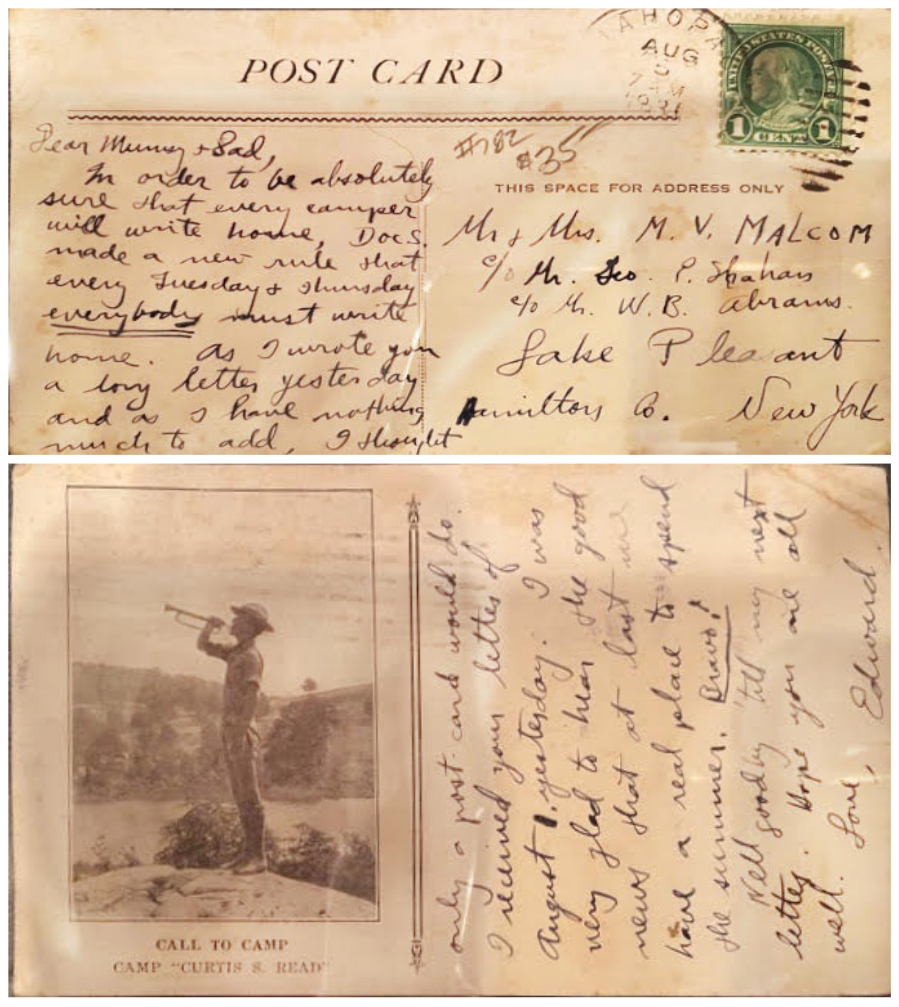 POST CARD
AHOPA
AUG
UNITED STATES POSTAGE
1 CENT 1
#782
#35
THIS SPACE FOR ADDRESS ONLY
Dear Mumsy + Dad,
In order to be absolutely
sure that every camper
will write home, Doc S.
made a new rule that
every Tuesday + Thursday
everybody must write
home. As I wrote you
a long letter yesterday
and as I have nothing
much to add, I thought
Mr + Mrs. M. V. MALCOM
c/o Mr. Geo. P.
c/o Mr. W. B. Abrams.
Lake Pleasant
Hamilton Co. New York
CALL TO CAMP
CAMP "CURTIS S. READ"
only a post card would do.
I received your letter of
August 1, yesterday. I was
very glad to hear the good
news that at last we
have a real place to spend
the summer. Bravo!
Well goodby 'till my next
letter. Hope you are all
well. Love, Edward.